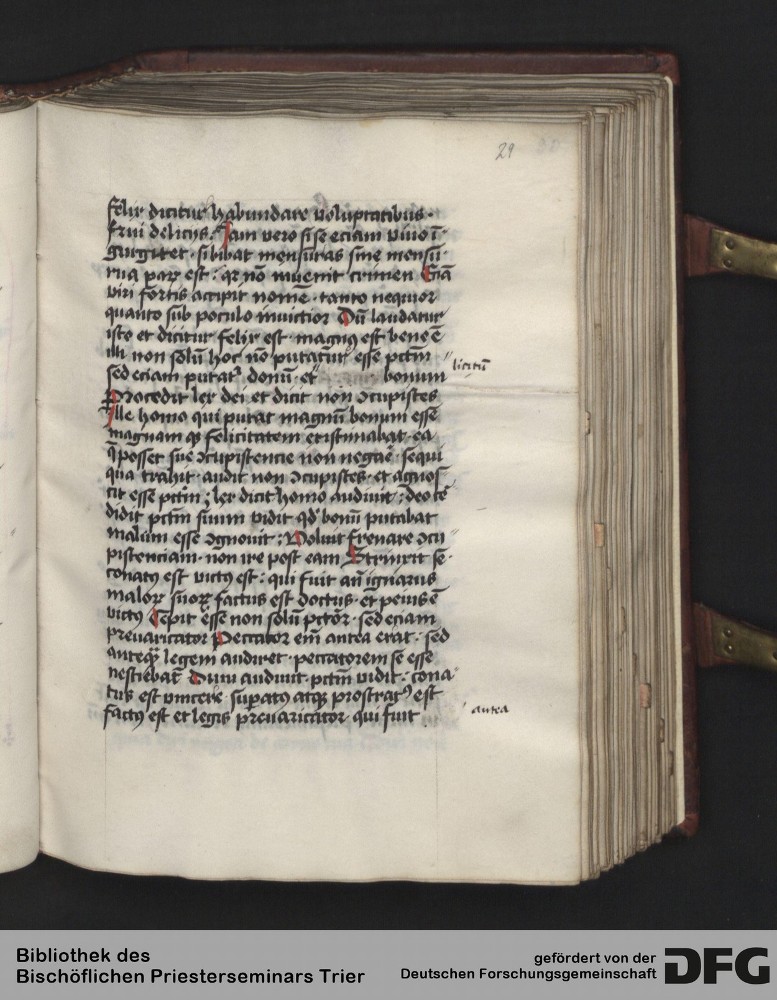 29
felix dicitur habundare voluptatibus ·
frui delicijs : Iam vero si se eciam vino ī ·
gurgitet · si bibat mensuras sine mensu
rua par est : qr nō inuenit crimen Eciā
viri fortis accipit nomē · tanto nequior
quanto sub poculo inuictior Dū laudatur
iste et dicitur felix est · magnꝰ est bene ē
illi non solū hoc nō putatur esse pctm̄
sed eciam putatᷣ donū · et bonum
licitū
Procedit lex dei et dicit non ꝯcupistes
Ille homo qui putat magnū bonum esse
magnam qꝫ felicitatem existimabat · ea
posset sue ꝯcupistencie non negare · sequi
qua trahit · audit non ꝯcupistes · et agnos
cit esse pctm̄ ; lex dicit homo audiuit ; deo cre
didit pctm̄ suum vidit qd' bonū putabat
malum esse ꝯgnouit ; Voluit frenare ꝯcu
pistenciam · non ire post eam Strinxit se ·
conatꝰ est victꝰ est : qui fuit an̄ ignarus
malor suor factus est doctus · et peius ē
victꝰ Cepit esse non solū pctor̄ · sed eciam
preuaricator Peccator em̄ antea erat · sed
anteqꝫ legem audiret · peccatorem se esse
nesciebat Dum audiuit · pctm̄ vidit : cona
tus est vincere suꝑatꝰ atqꝫ prostratꝰ est
factꝰ est et legis preuaricator · qui fuit
antea
Bibliothek des
Bischöflichen Priesterseminars Trier
gefördert von der
Deutschen Forschungsgemeinschaft
DFG